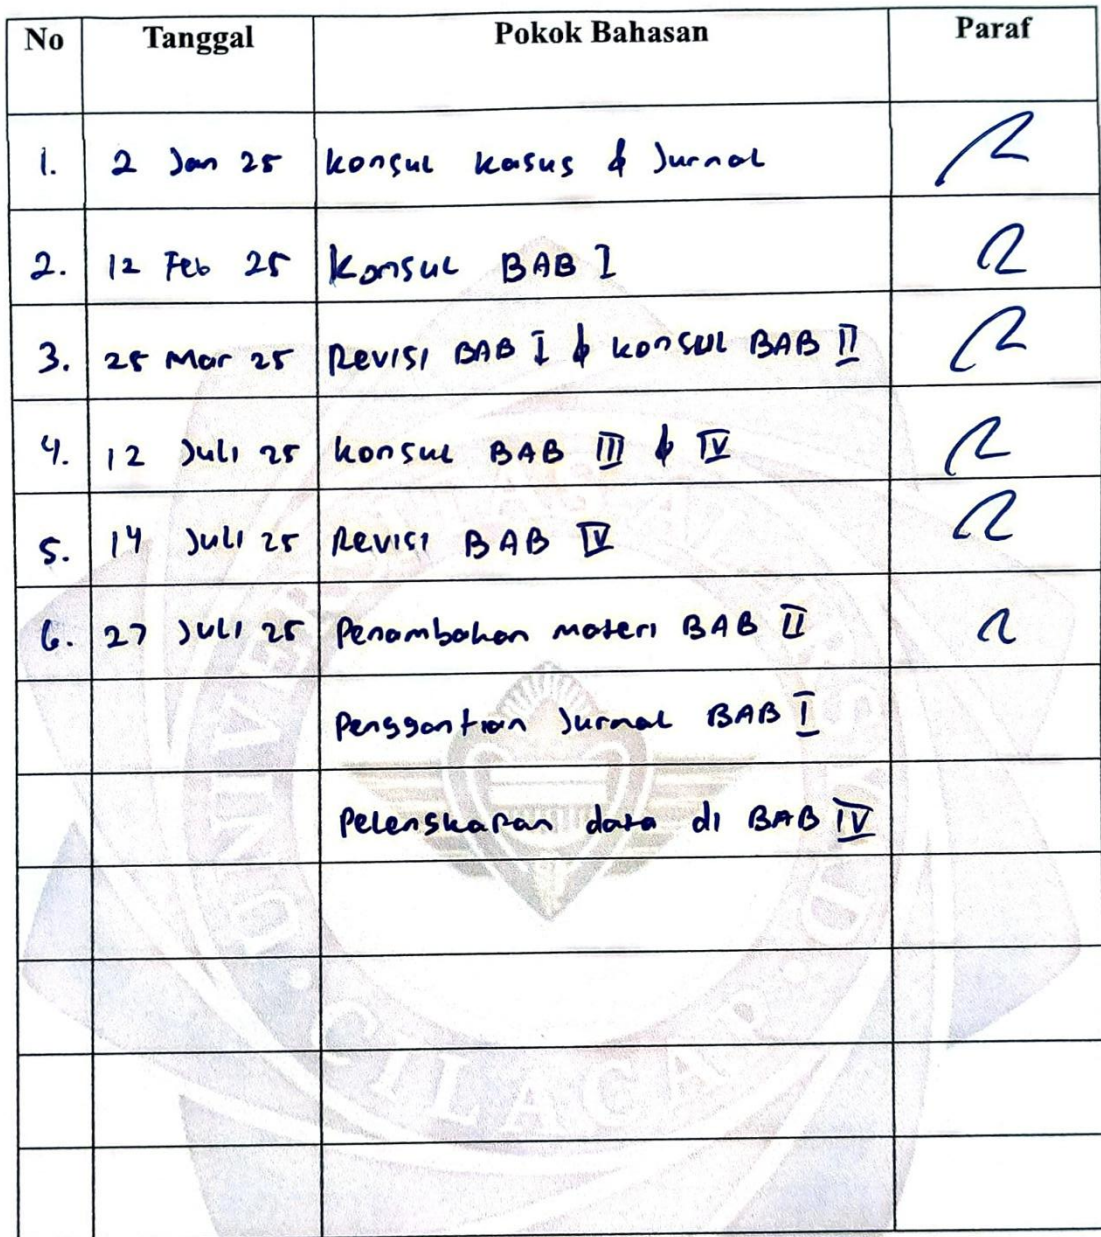 No Tanggal Pokok Bahasan Paraf
1. 2 Jan 25 Konsul Kasus & Jurnal
2. 12 Feb 25 Konsul BAB I
3. 25 Mar 25 Revisi BAB I & Konsul BAB II
4. 12 Juli 25 Konsul BAB III & IV
5. 14 Juli 25 Revisi BAB IV
6. 27 Juli 25 Penambahan materi BAB II
Penggantian Jurnal BAB I
Pelengkapan data di BAB IV
UNIVERSITAS AL-IRSYAD
CILACAP